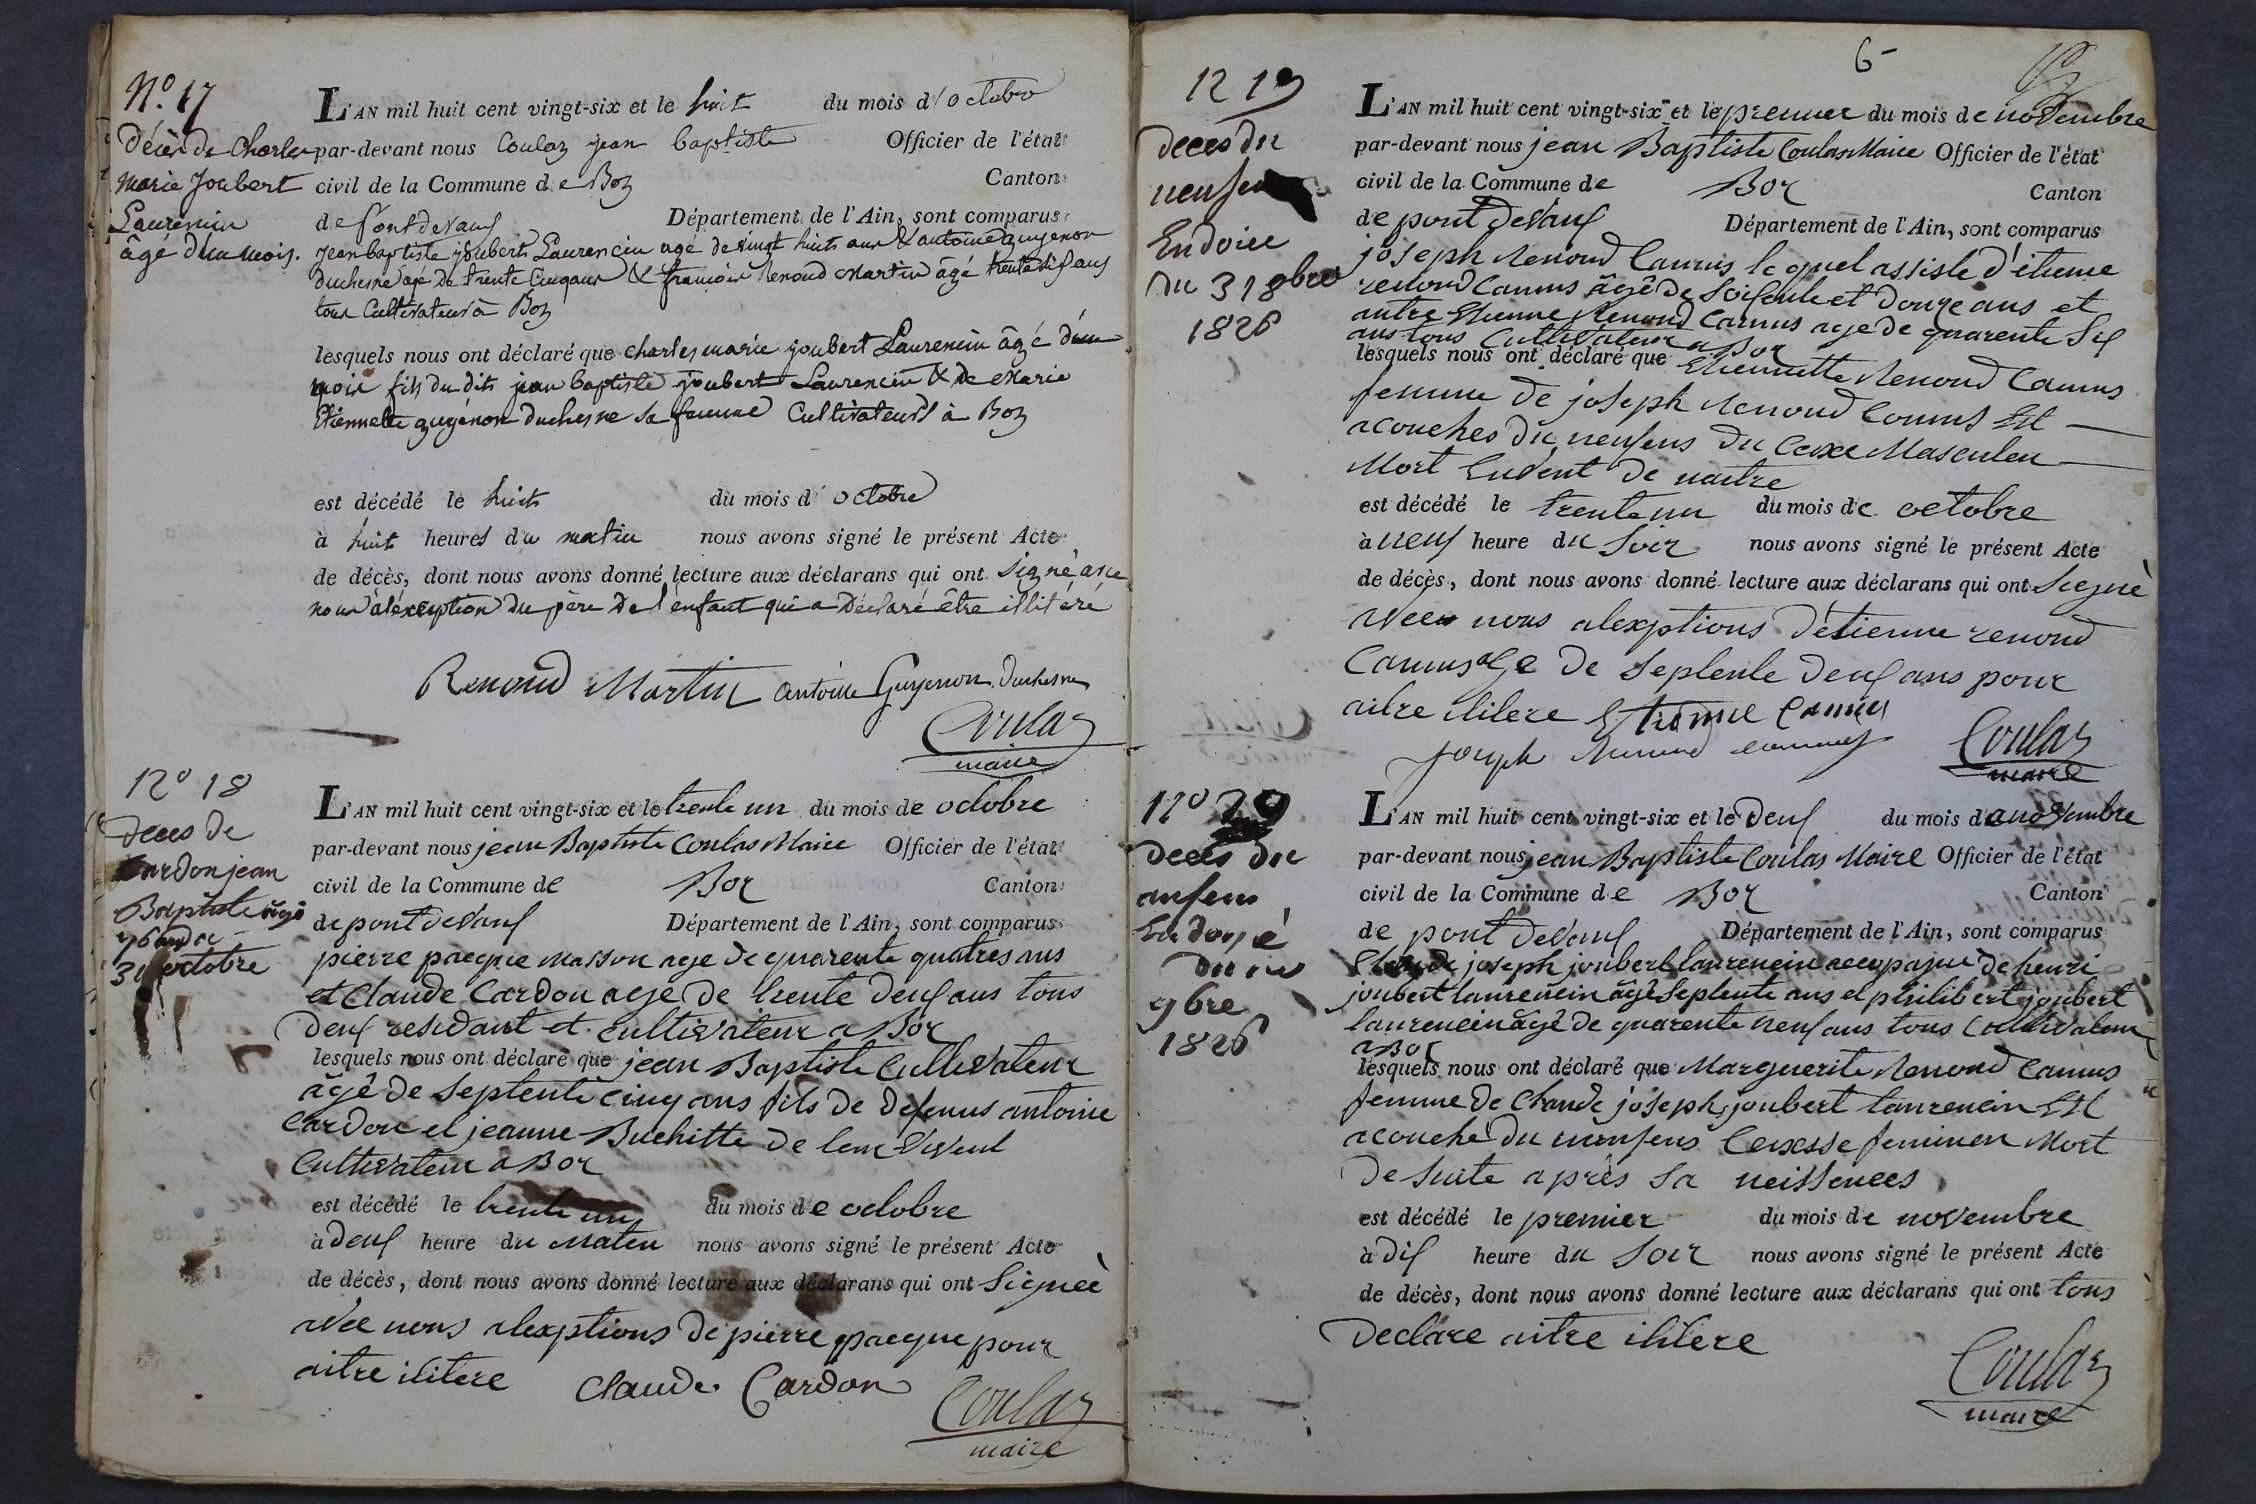 N.º 17
Décès de Charles
marie Joubert
Laurencin
âgé d'un mois.
L'AN mil huit cent vingt-six et le huit du mois d'octobre
par-devant nous Coulaz jean baptiste Officier de l'état
civil de la Commune de Boz Canton
de Pontdevaux Département de l'Ain, sont comparus
jean baptiste joubert Laurencin agé de vingt huits ans & antoine guyenon
duchesne agé de trente cinq ans & francois Renoud Martin âgé trente six ans
tous Cultivateurs à Boz
lesquels nous ont déclaré que charles marie joubert Laurencin âgé d'un
mois fils du dits jean baptiste joubert Laurencin & de Marie
Etiennette guyénon duchesne sa femme Cultivateurs à Boz
est décédé le huits du mois d'octobre
à huit heures du matin nous avons signé le présent Acte
de décès, dont nous avons donné lecture aux déclarans qui ont signé, avec
nous à l'éxception du père de l'enfant qui a Déclaré être illitéré
Renoud Martin antoine Guyenon Duchesne
Coulaz
maire
Nº 18
Deces de
Cardon jean
Baptiste âgé
octobre
L'AN mil huit cent vingt-six et le trente un du mois de octobre
par-devant nous jean Baptiste Coulas Maire Officier de l'état
civil de la Commune de Boz Canton
de pont devaux Département de l'Ain, sont comparus
pierre pacque Masson age de quarente quatres ans
et Claude Cardon age de trente deux ans tous
deux residant et cultivateur a Boz
lesquels nous ont déclaré que jean Baptiste Cultivateur
âgé de septente cinq ans fils de defenus antoine
Cardon et jeanne Buchitte de leur vivent
Cultivateur a Boz
est décédé le trente un du mois de octobre
à deux heure du maten nous avons signé le présent Acte
de décès, dont nous avons donné lecture aux déclarans qui ont signeé
avec nous alexptions de pierre pacque pour
aitre ilitere Claude Cardon
Coulaz
maire
6
Nº 19
deces du
Endoiee
du 31 8bre
1826
L'AN mil huit cent vingt-six et le premier du mois de novembre
par-devant nous jean Baptiste Coulas Maire Officier de l'état
civil de la Commune de Boz Canton
de pont devaux Département de l'Ain, sont comparus
joseph Renoud Camus lequel assiste d'etienne
renoud Camus âgé de soisente et douze ans et
autre Etienne Renoud Camus age de quarente six
ans tous Cultivateur a Boz
lesquels nous ont déclaré que Etiennette Renoud Camus
femme de joseph Renoud Comus Est
acouches du nenfens du Cexe Masculen
Mort Endvent de naitre
est décédé le trente un du mois de octobre
à neuf heure du soir nous avons signé le présent Acte
de décès, dont nous avons donné lecture aux déclarans qui ont siegné
avec nous alexptions d'etienne renoud
Camus age de septente deux ans pour
aitre ilitere Etienne Camus
joseph Renoud camus
Coulaz
maire
Nº 20
deces du
anfens
9bre
1826
L'AN mil huit cent vingt-six et le deux du mois de novembre
par-devant nous jean Baptiste Coulas Maire Officier de l'état
civil de la Commune de Boz Canton
de pont devaux Département de l'Ain, sont comparus
Claude joseph joubert laurencin accopajne de henri
joubert laurencin âgé septente ans et philibert joubert
laurencin âgé de quarente neuf ans tous Cultivateur
a Boz
lesquels nous ont déclaré que Marguerite Renoud Camus
femme de Claude joseph joubert laurencin Est
acouche du nenfens Cexesse feminen Mort
de suite après sa neissences
est décédé le premier du mois de novembre
à dix heure du soir nous avons signé le présent Acte
de décès, dont nous avons donné lecture aux déclarans qui ont tous
declare aitre ilitere
Coulaz
maire